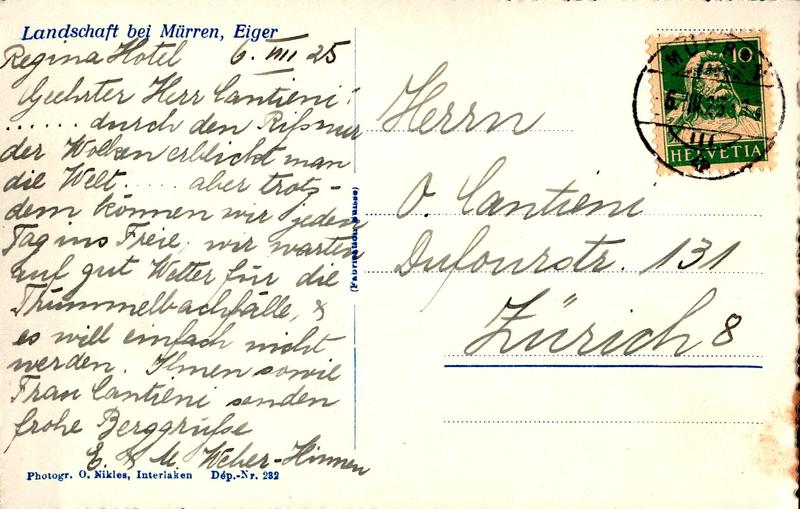 Landschaft bei Mürren, Eiger
Regina Hotel 6. VIII 25
Geehrter Herr Cantieni!
...... durch den Riß nur
der Wolken erblickt man
die Welt ..... aber trotz-
dem können wir jeden
Tag ins Freie, wir warten
auf gut Wetter für die
Thümmelbachfälle, &
es will einfach nicht
werden. Ihnen sowie
Frau Cantieni senden
frohe Berggrüße
E. & M. Weber-Hinnen
Photogr. O. Nikles, Interlaken Dép.-Nr. 232
(Fabrication Suisse)
10
HELVETIA
MÜRREN
VIII
Herrn
O. Cantieni
Dufourstr. 131
Zürich 8